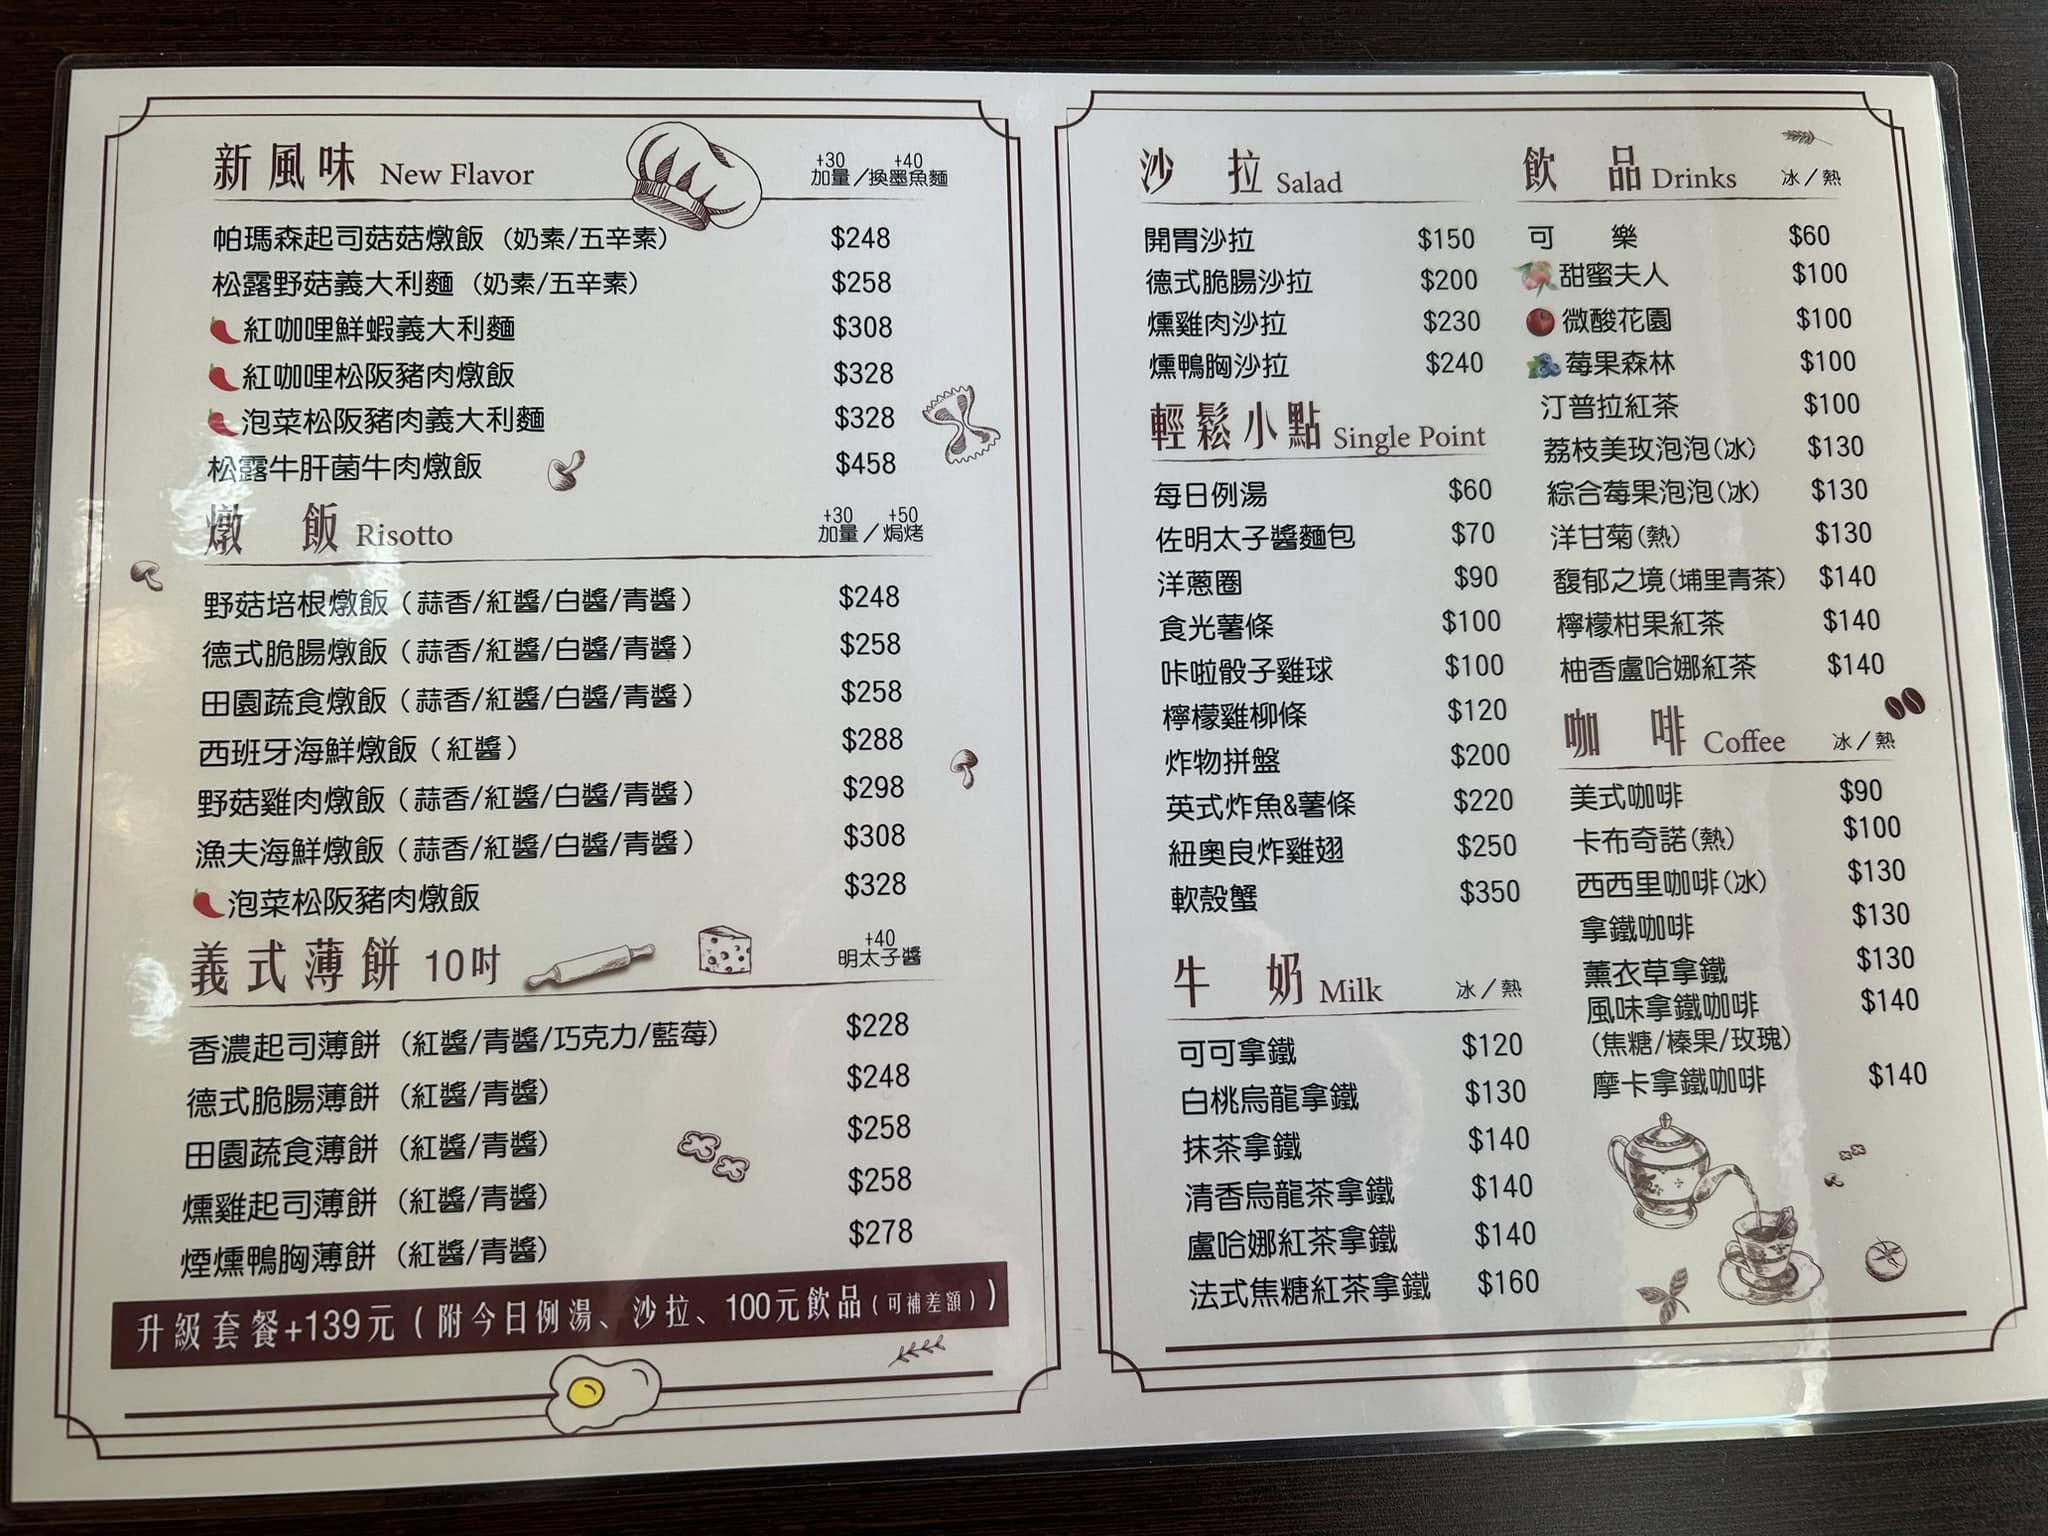 新風味 New Flavor
+30 +40
加量／換墨魚麵
帕瑪森起司菇菇燉飯（奶素/五辛素） $248
松露野菇義大利麵（奶素/五辛素） $258
紅咖哩鮮蝦義大利麵 $308
紅咖哩松阪豬肉燉飯 $328
泡菜松阪豬肉義大利麵 $328
松露牛肝菌牛肉燉飯 $458
燉飯 Risotto
+30 +50
加量／焗烤
野菇培根燉飯（蒜香/紅醬/白醬/青醬） $248
德式脆腸燉飯（蒜香/紅醬/白醬/青醬） $258
田園蔬食燉飯（蒜香/紅醬/白醬/青醬） $258
西班牙海鮮燉飯（紅醬） $288
野菇雞肉燉飯（蒜香/紅醬/白醬/青醬） $298
漁夫海鮮燉飯（蒜香/紅醬/白醬/青醬） $308
泡菜松阪豬肉燉飯 $328
義式薄餅 10吋
+40
明太子醬
香濃起司薄餅（紅醬/青醬/巧克力/藍莓） $228
德式脆腸薄餅（紅醬/青醬） $248
田園蔬食薄餅（紅醬/青醬） $258
燻雞起司薄餅（紅醬/青醬） $258
煙燻鴨胸薄餅（紅醬/青醬） $278
升級套餐+139元（附今日例湯、沙拉、100元飲品（可補差額））
沙拉 Salad
開胃沙拉 $150
德式脆腸沙拉 $200
燻雞肉沙拉 $230
燻鴨胸沙拉 $240
輕鬆小點 Single Point
每日例湯 $60
佐明太子醬麵包 $70
洋蔥圈 $90
食光薯條 $100
咔啦骰子雞球 $100
檸檬雞柳條 $120
炸物拼盤 $200
英式炸魚&薯條 $220
紐奧良炸雞翅 $250
軟殼蟹 $350
牛奶 Milk 冰／熱
可可拿鐵 $120
白桃烏龍拿鐵 $130
抹茶拿鐵 $140
清香烏龍茶拿鐵 $140
盧哈娜紅茶拿鐵 $140
法式焦糖紅茶拿鐵 $160
飲品 Drinks 冰／熱
可樂 $60
甜蜜夫人 $100
微酸花園 $100
莓果森林 $100
汀普拉紅茶 $100
荔枝美玫泡泡(冰) $130
綜合莓果泡泡(冰) $130
洋甘菊(熱) $130
馥郁之境(埔里青茶) $140
檸檬柑果紅茶 $140
柚香盧哈娜紅茶 $140
咖啡 Coffee 冰／熱
美式咖啡 $90
卡布奇諾(熱) $100
西西里咖啡(冰) $130
拿鐵咖啡 $130
薰衣草拿鐵 $130
風味拿鐵咖啡 $140
(焦糖/榛果/玫瑰)
摩卡拿鐵咖啡 $140